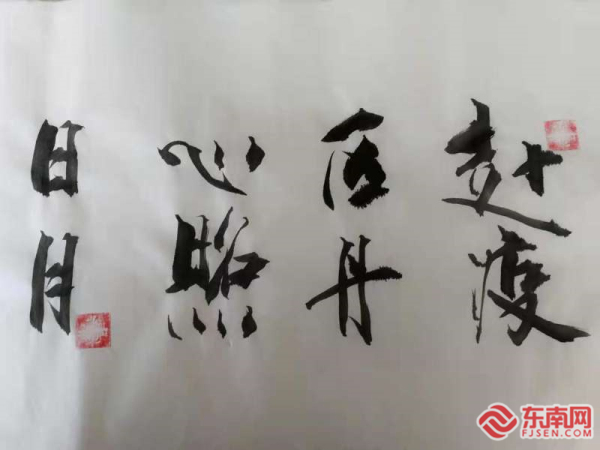 赴疫
区丹
心照
日月
东南网
FJSEN.COM